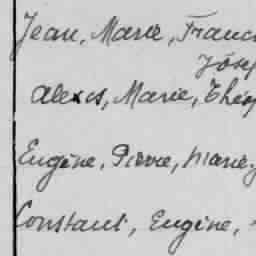 Jean, Marie, Franc
Josep
Alexis, Marie, Théop
Eugène, Pierre, Marie,
Constant, Eugène,